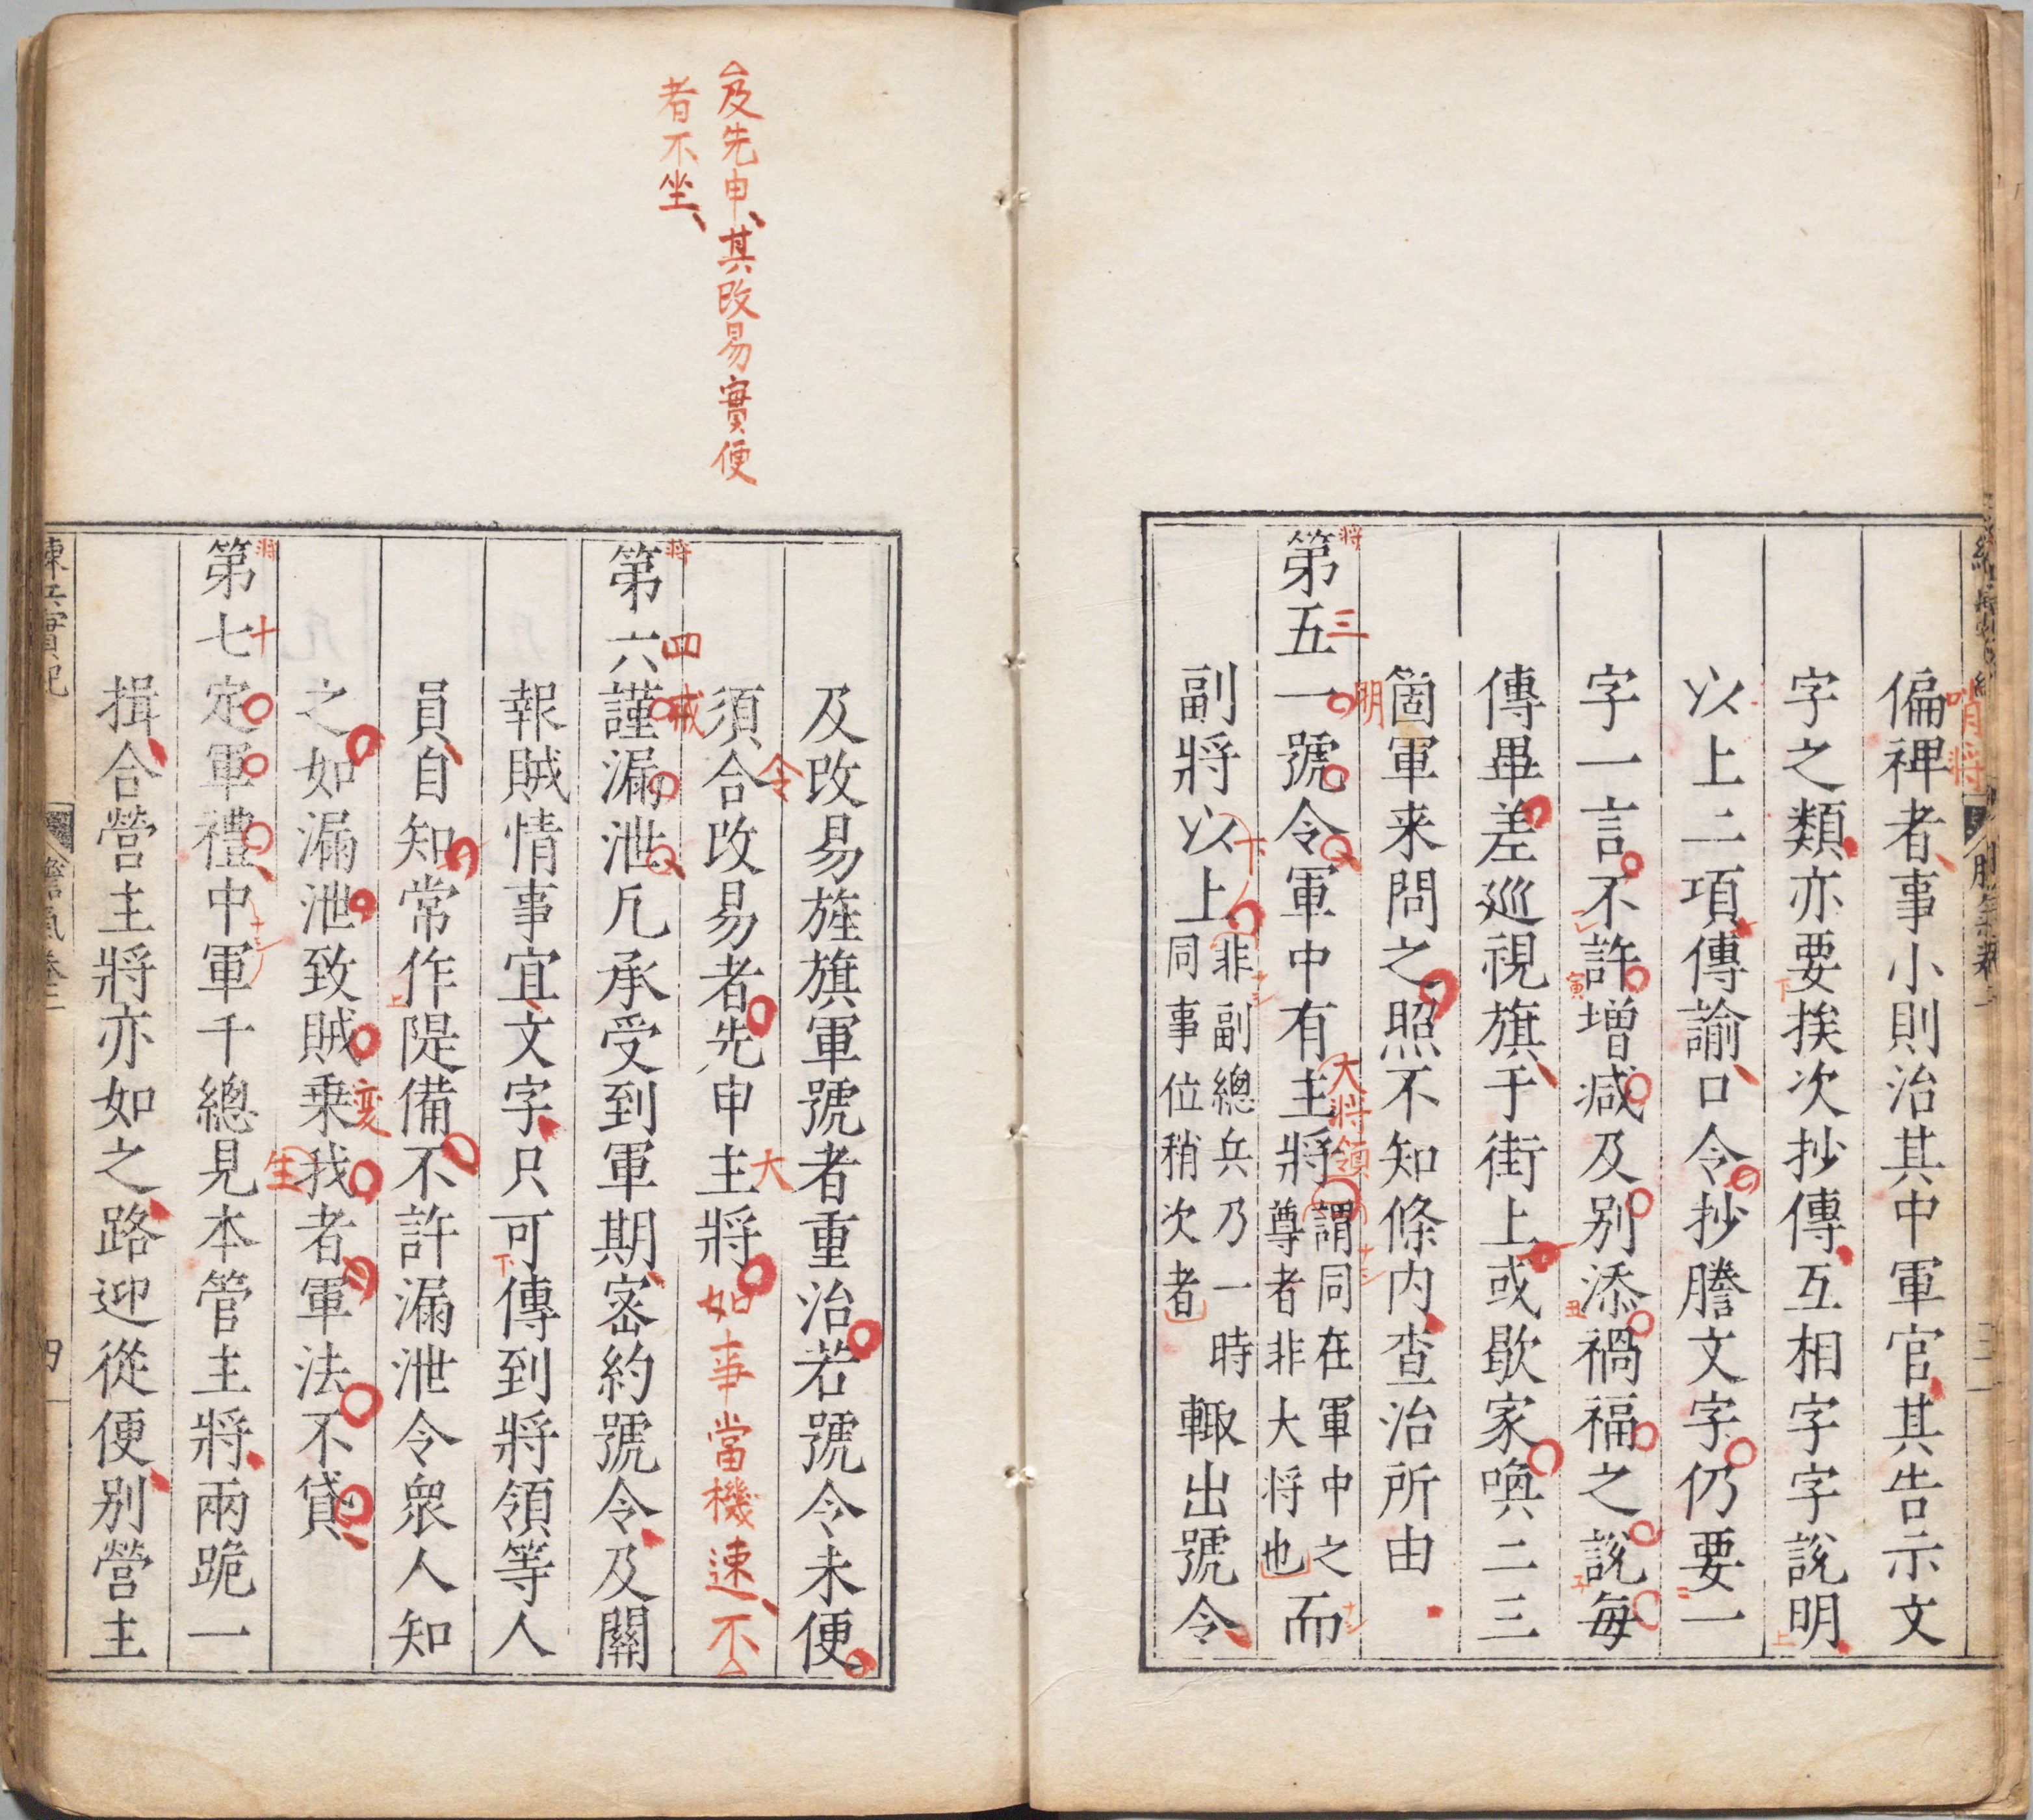 偏裨者事小則治其中軍官其告示文
哨將
字之類亦要挨次抄傳互相字字說明
下
上
以上二項傳諭口令抄謄文字仍要一
二
字一言不許增減及别添禍福之說每
寅
丑
子
傳畢差巡視旗于街上或歇家喚二三
箇軍来問之照不知條内查治所由
第五一號令軍中有主將謂同在軍中之
尊者非大将也而
將
三
明
大將領
副將以上非副總兵乃一時
同事位稍次者輙出號令
下
及改易旌旗軍號者重治若號令未便
須合改易者先申主將
令
大
如事當機速不
及先申其改易實便
者不坐
第六謹漏泄凡承受到軍期密約號令及關
將
四
戒
報賊情事宜文字只可傳到將領等人
下
員自知常作隄備不許漏泄令衆人知
上
之如漏泄致賊乗我者軍法不貸
変
生
第七定軍禮中軍千總見本管主將兩跪一
將
十
揖合營主將亦如之路迎從便别營主
練兵實紀
膽氣卷二
四